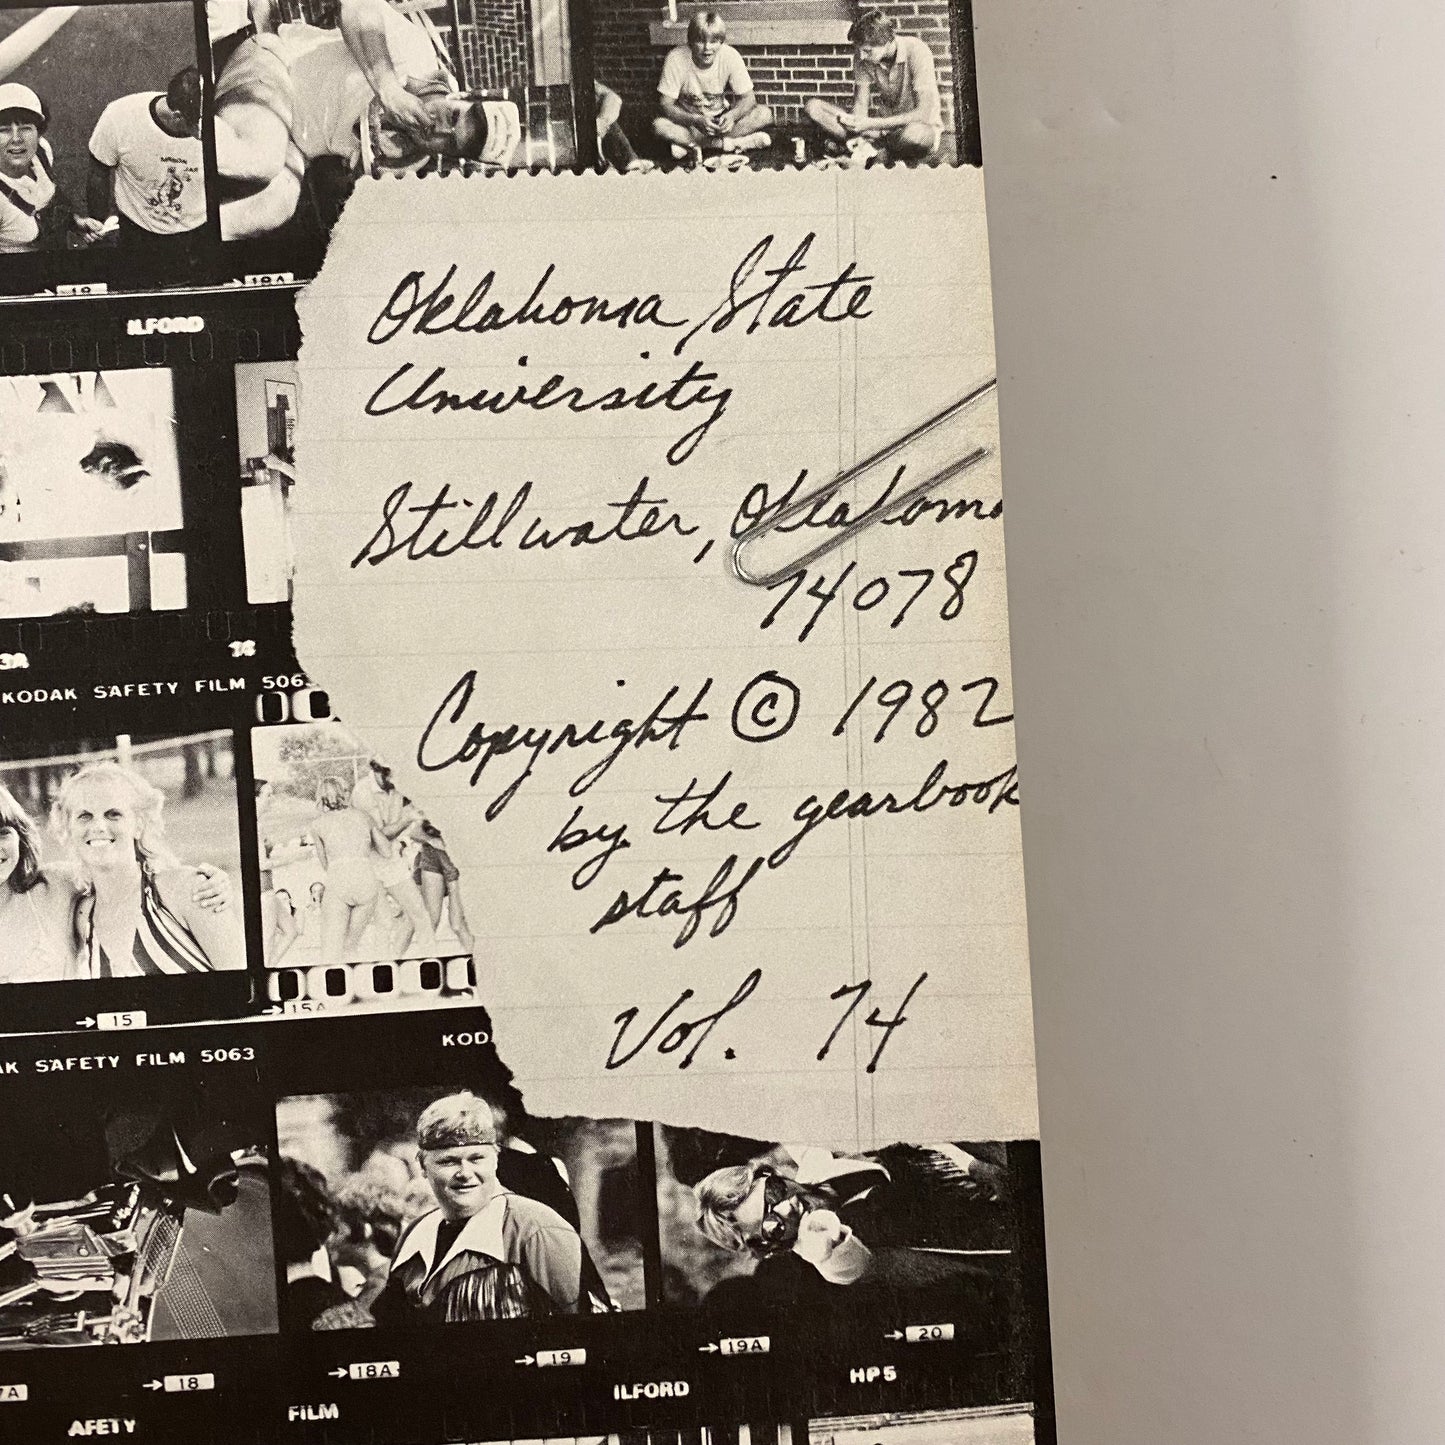 →19
→19A
ILFORD
Oklahoma State
University
Stillwater, Oklahoma
74078
Copyright © 1982
by the yearbook
staff
Vol. 74
3A
KODAK SAFETY FILM 5063
→15
→15A
AK SAFETY FILM 5063
KOD
7A
→18
→18A
→19
→19A
→20
AFETY
FILM
ILFORD
HP5